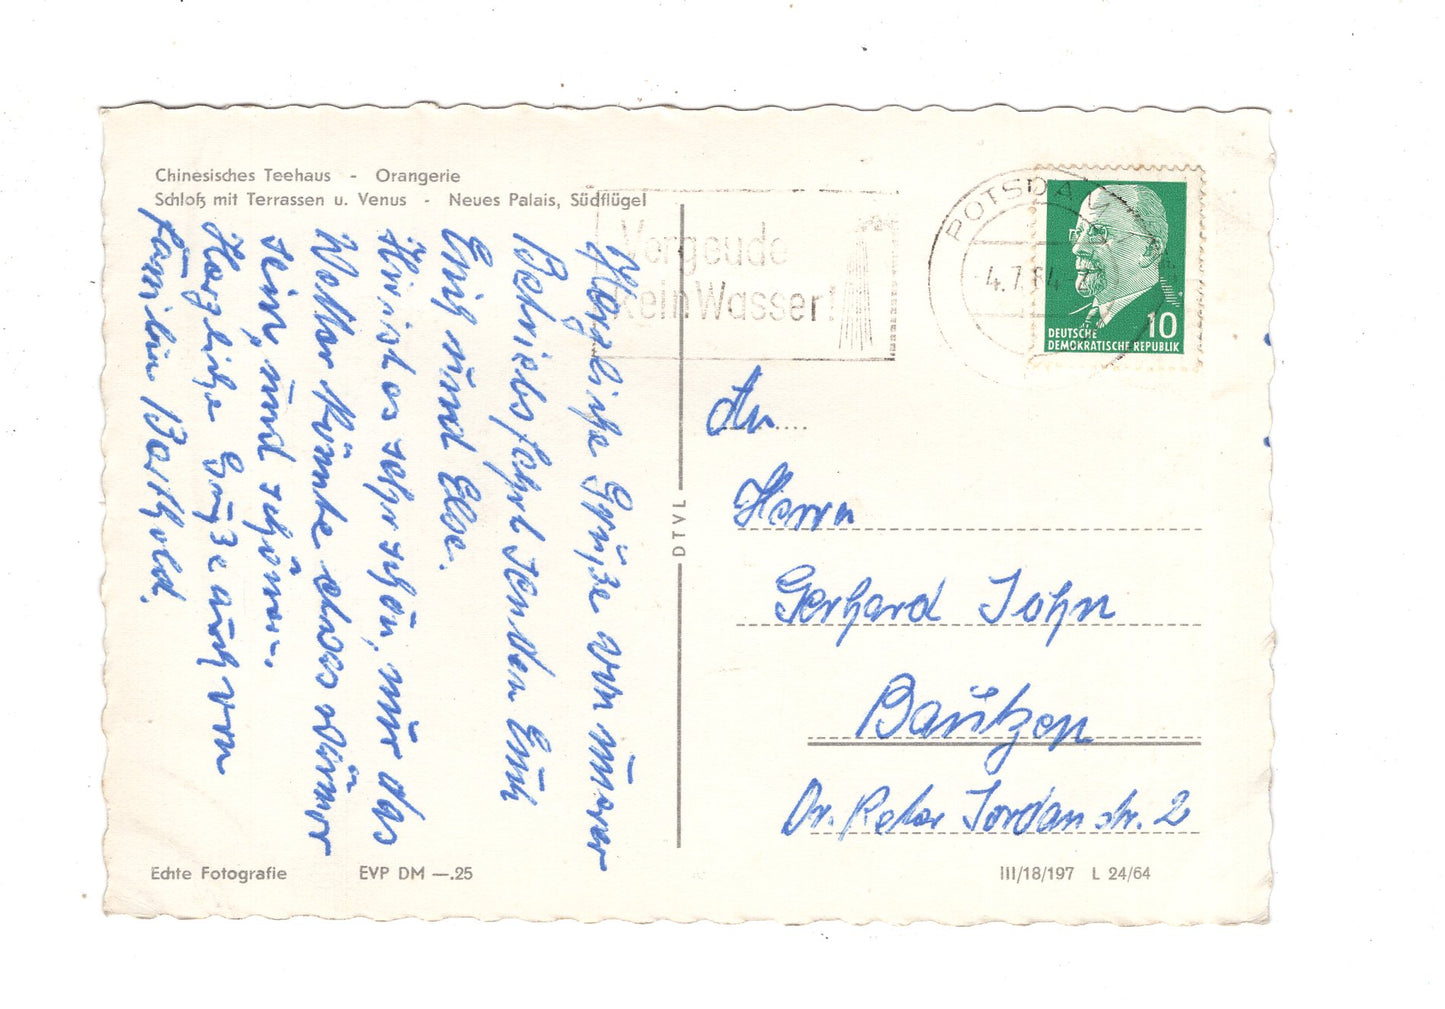 Chinesisches Teehaus - Orangerie
Schloß mit Terrassen u. Venus - Neues Palais, Südflügel
Herzliche Grüße von unserer
Betriebsfahrt senden Euch
Erich und Else.
Hier ist es sehr schön, nur das
Wetter könnte etwas wärmer
sein, und schöner.
Herzliche Grüße auch von
Familie Barthold.
DTVL
Vergeude
kein Wasser!
POTSDAM
4.7.64
DEUTSCHE
DEMOKRATISCHE REPUBLIK
10
An
Herrn
Gerhard John
Bautzen
Dr. Peter Jordanstr. 2
Echte Fotografie EVP DM —.25
III/18/197 L 24/64